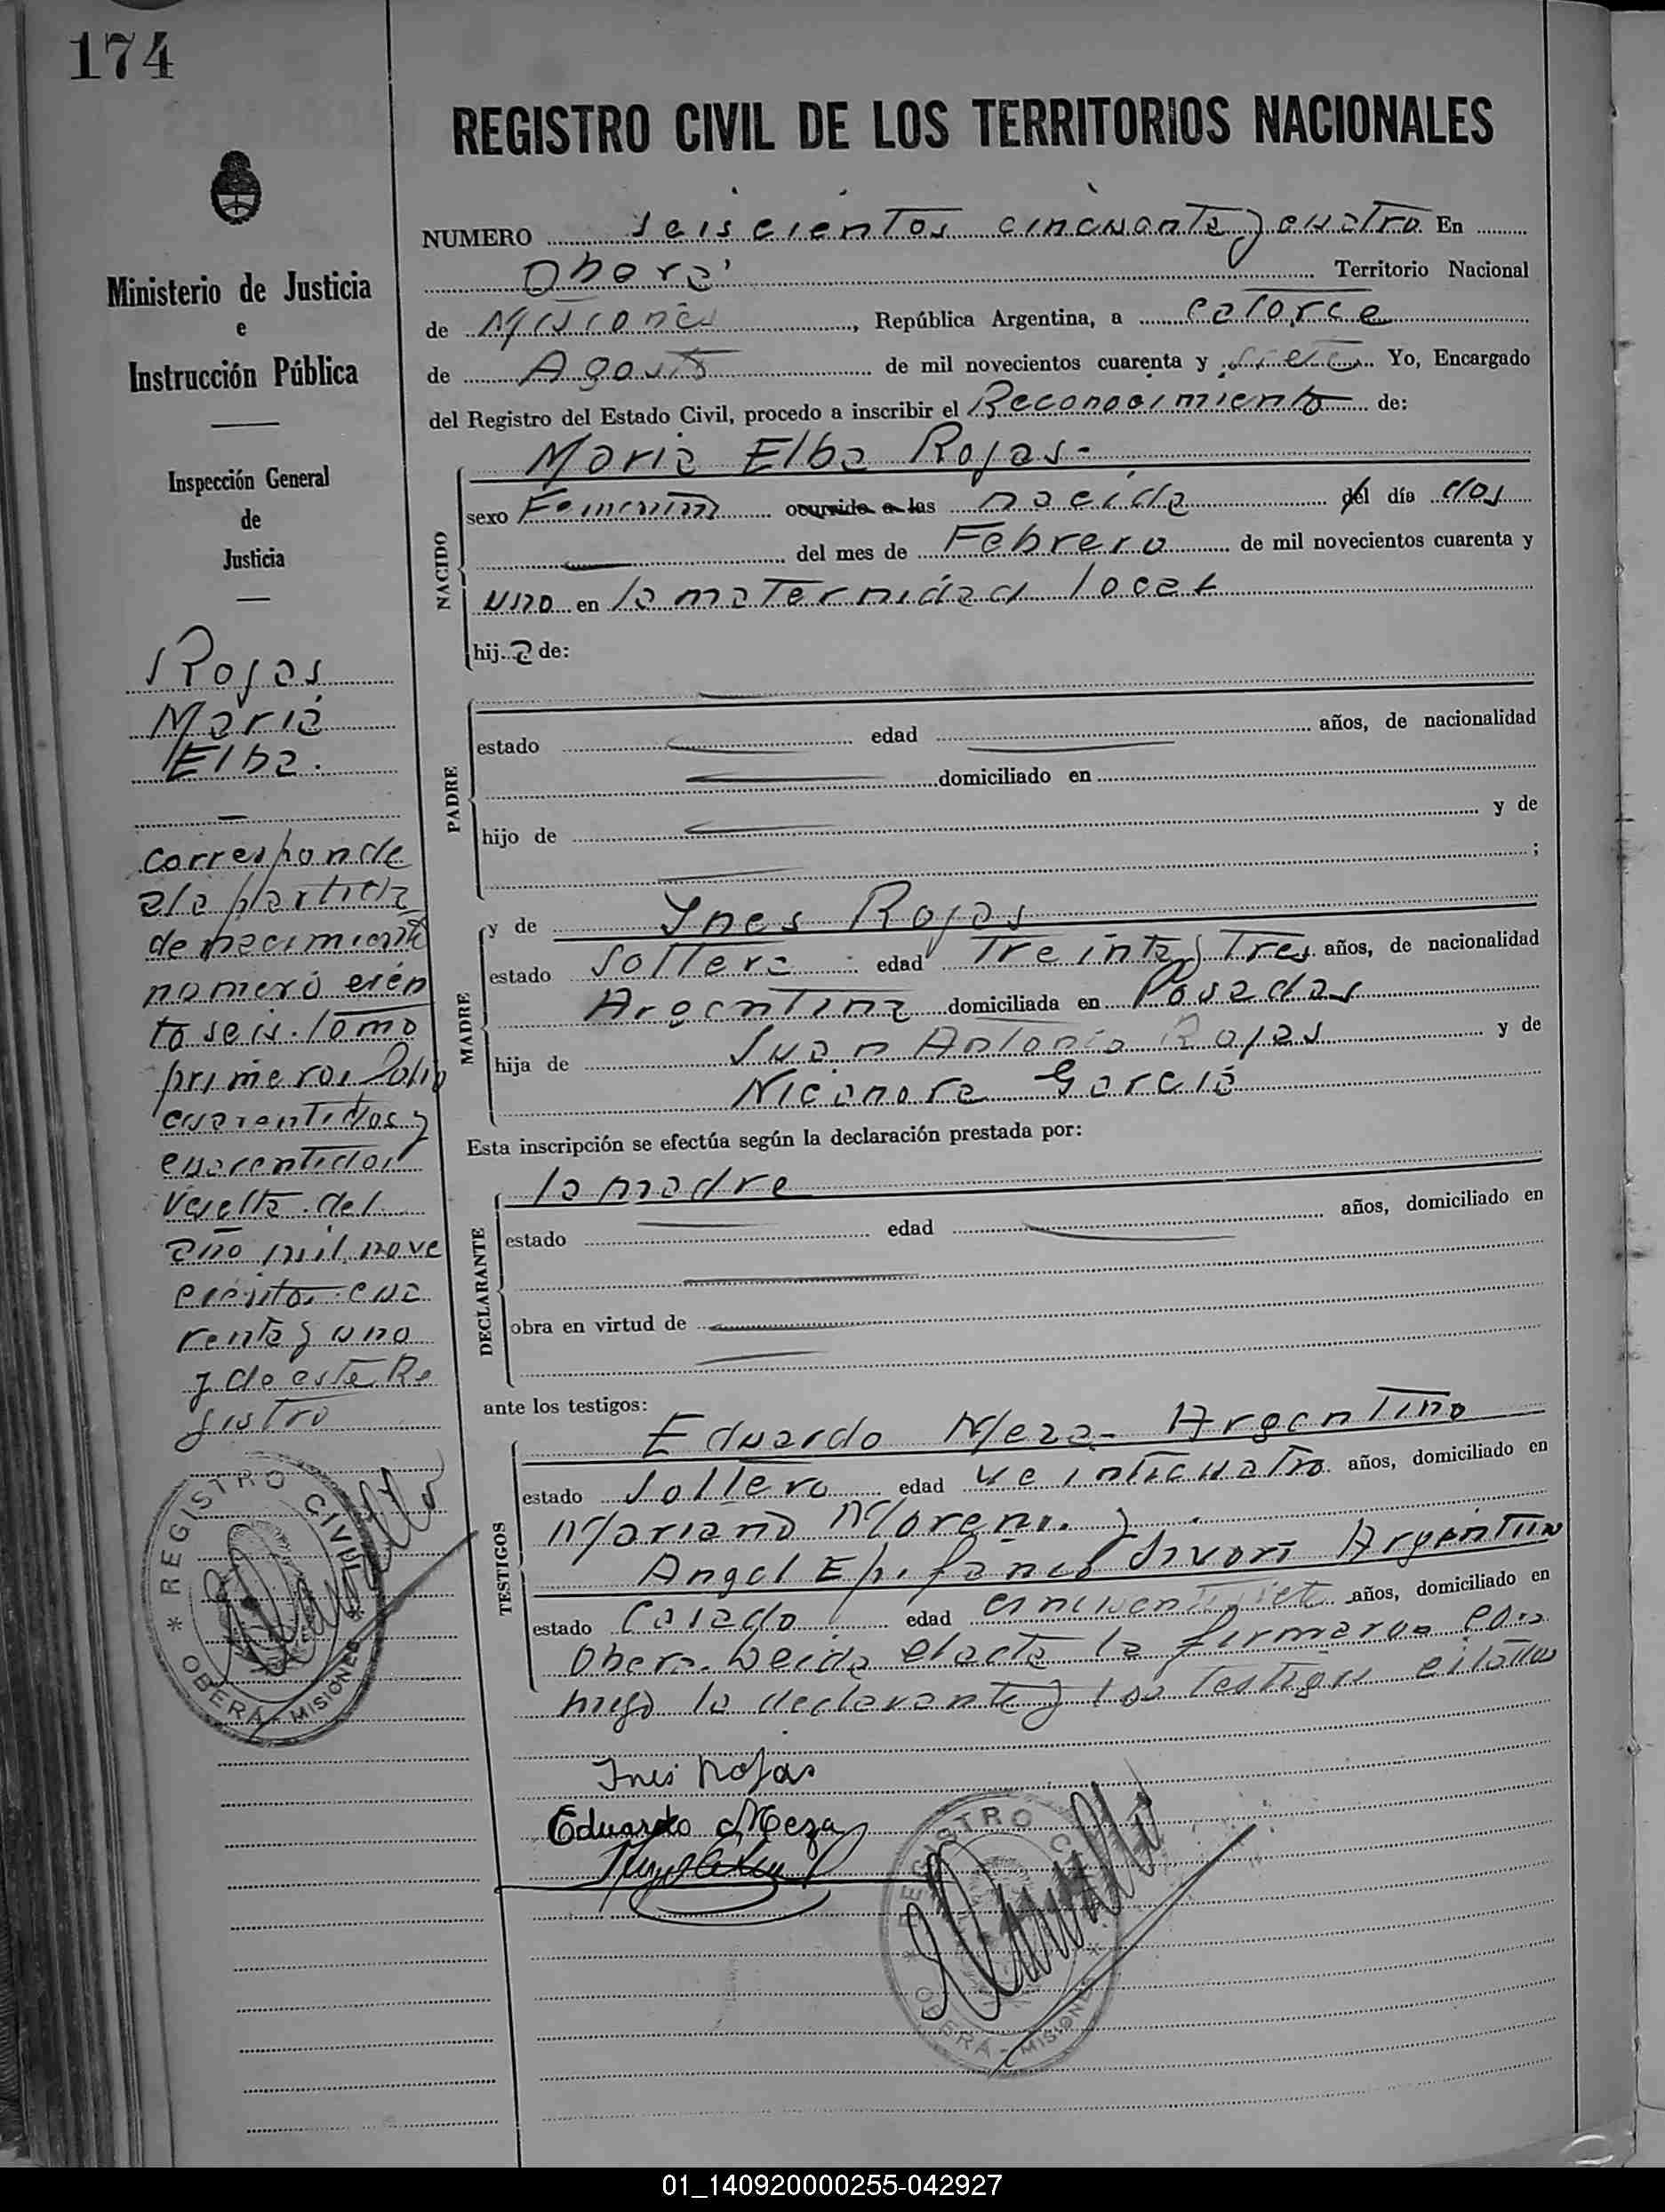 174
REGISTRO CIVIL DE LOS TERRITORIOS NACIONALES
NUMERO seiscientos cincuenta y cuatro En
Oberá Territorio Nacional
de Misiones, República Argentina, a catorce
de Agosto de mil novecientos cuarenta y siete Yo, Encargado
del Registro del Estado Civil, procedo a inscribir el Reconocimiento de:
NACIDO
Maria Elba Rojas-
sexo Femenino ocurrido a las nacida del día dos
del mes de Febrero de mil novecientos cuarenta y
uno en la maternidad local
hij a de:
PADRE
estado edad años, de nacionalidad
domiciliado en
hijo de y de
;
MADRE
y de Ynes Rojas
estado Soltera edad Treinta y Tres años, de nacionalidad
Argentina domiciliada en Posadas
hija de Juan Antonio Rojas y de
Nicanora Garcia
Esta inscripción se efectúa según la declaración prestada por:
DECLARANTE
la madre
estado edad años, domiciliado en
obra en virtud de
ante los testigos:
TESTIGOS
Eduardo Meza- Argentino
estado Soltero edad veinticuatro años, domiciliado en
Mariano Moreno y
Angel Epifanio Sivori Argentino
estado Casado edad años, domiciliado en
Obera. Leida el acta la firmaron con
migo la declarante y los testigos citados
Ines Rojas
Eduardo Meza
REGISTRO CIVIL
OBERÁ - MISIONES
Ministerio de Justicia
e
Instrucción Pública
Inspección General
de
Justicia
Rojas
Maria
Elba.
corresponde
a la partida
de nacimiento
numero cien
to seis. tomo
primero, folio
cuarentidos y
cuarentidos
vuelta del
año mil nove
cientos cua
renta y uno
y de este Re
gistro
REGISTRO CIVIL
OBERÁ - MISIONES
01_140920000255-042927